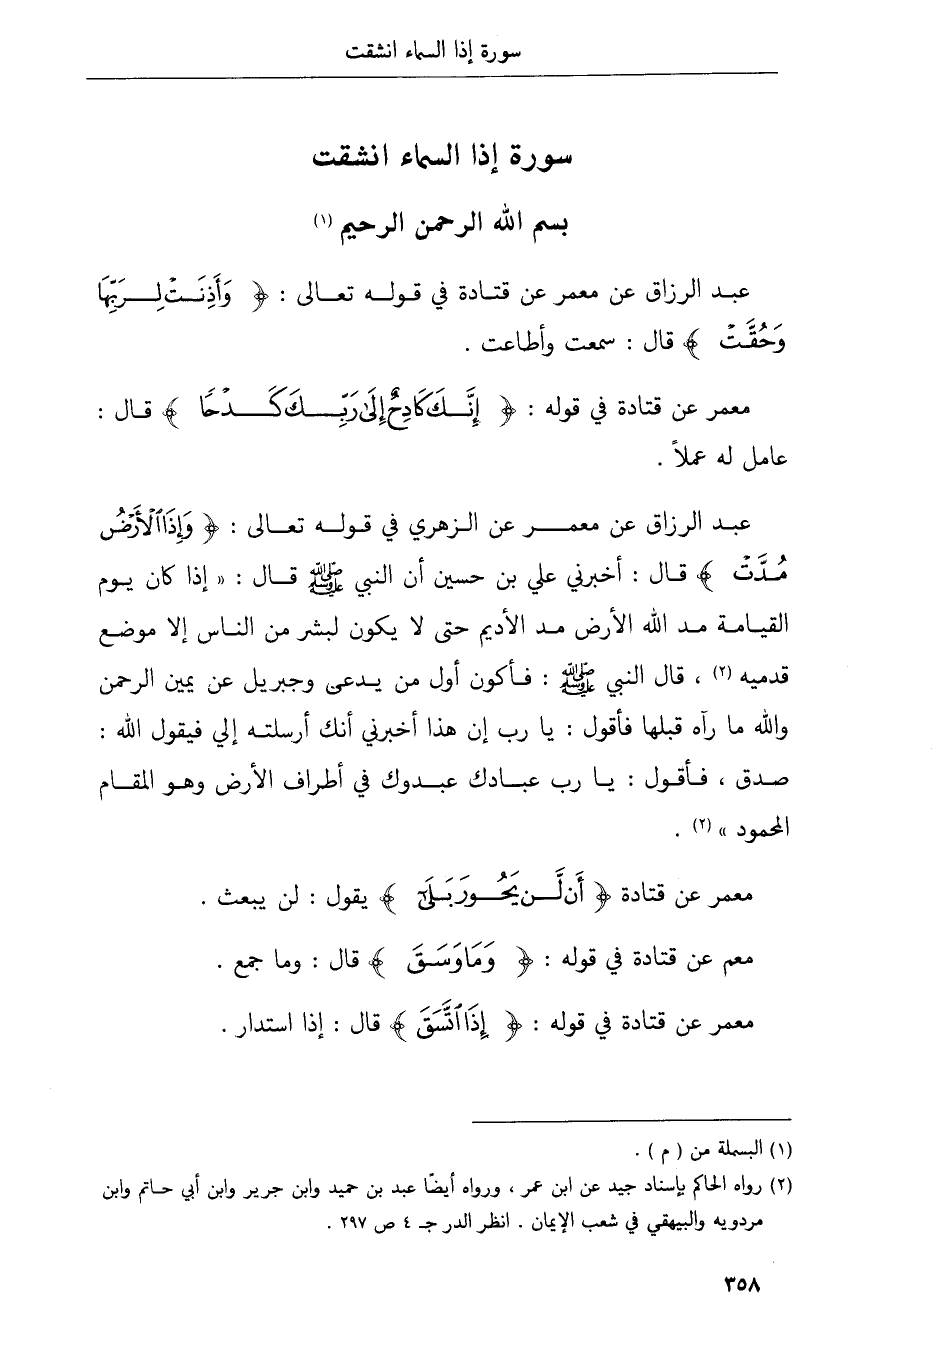 سورة إذا السماء انشقت
سورة إذا السماء انشقت
بسم الله الرحمن الرحيم (١)
عبد الرزاق عن معمر عن قتادة في قوله تعالى : ﴿ وَأَذِنَتْ لِرَبِّهَا
وَحُقَّتْ ﴾ قال : سمعت وأطاعت .
معمر عن قتادة في قوله : ﴿ إِنَّكَ كَادِحٌ إِلَىٰ رَبِّكَ كَدْحًا ﴾ قال :
عامل له عملاً .
عبد الرزاق عن معمر عن الزهري في قوله تعالى : ﴿ وَإِذَا ٱلْأَرْضُ
مُدَّتْ ﴾ قال : أخبرني علي بن حسين أن النبي ﷺ قال : « إذا كان يوم
القيامة مد الله الأرض مد الأديم حتى لا يكون لبشر من الناس إلا موضع
قدميه (٢) ، قال النبي ﷺ : فأكون أول من يدعى وجبريل عن يمين الرحمن
والله ما رآه قبلها فأقول : يا رب إن هذا أخبرني أنك أرسلته إلي فيقول الله :
صدق ، فأقول : يا رب عبادك عبدوك في أطراف الأرض وهو المقام
المحمود » (٢) .
معمر عن قتادة ﴿ أَن لَّن يَحُورَ بَلَىٰٓ ﴾ يقول : لن يبعث .
معم عن قتادة في قوله : ﴿ وَمَا وَسَقَ ﴾ قال : وما جمع .
معمر عن قتادة في قوله : ﴿ إِذَا ٱتَّسَقَ ﴾ قال : إذا استدار .
(١) البسملة من ( م ) .
(٢) رواه الحاكم بإسناد جيد عن ابن عمر ، ورواه أيضًا عبد بن حميد وابن جرير وابن أبي حاتم وابن
مردويه والبيهقي في شعب الإيمان . انظر الدر جـ ٤ ص ٢٩٧ .
٣٥٨